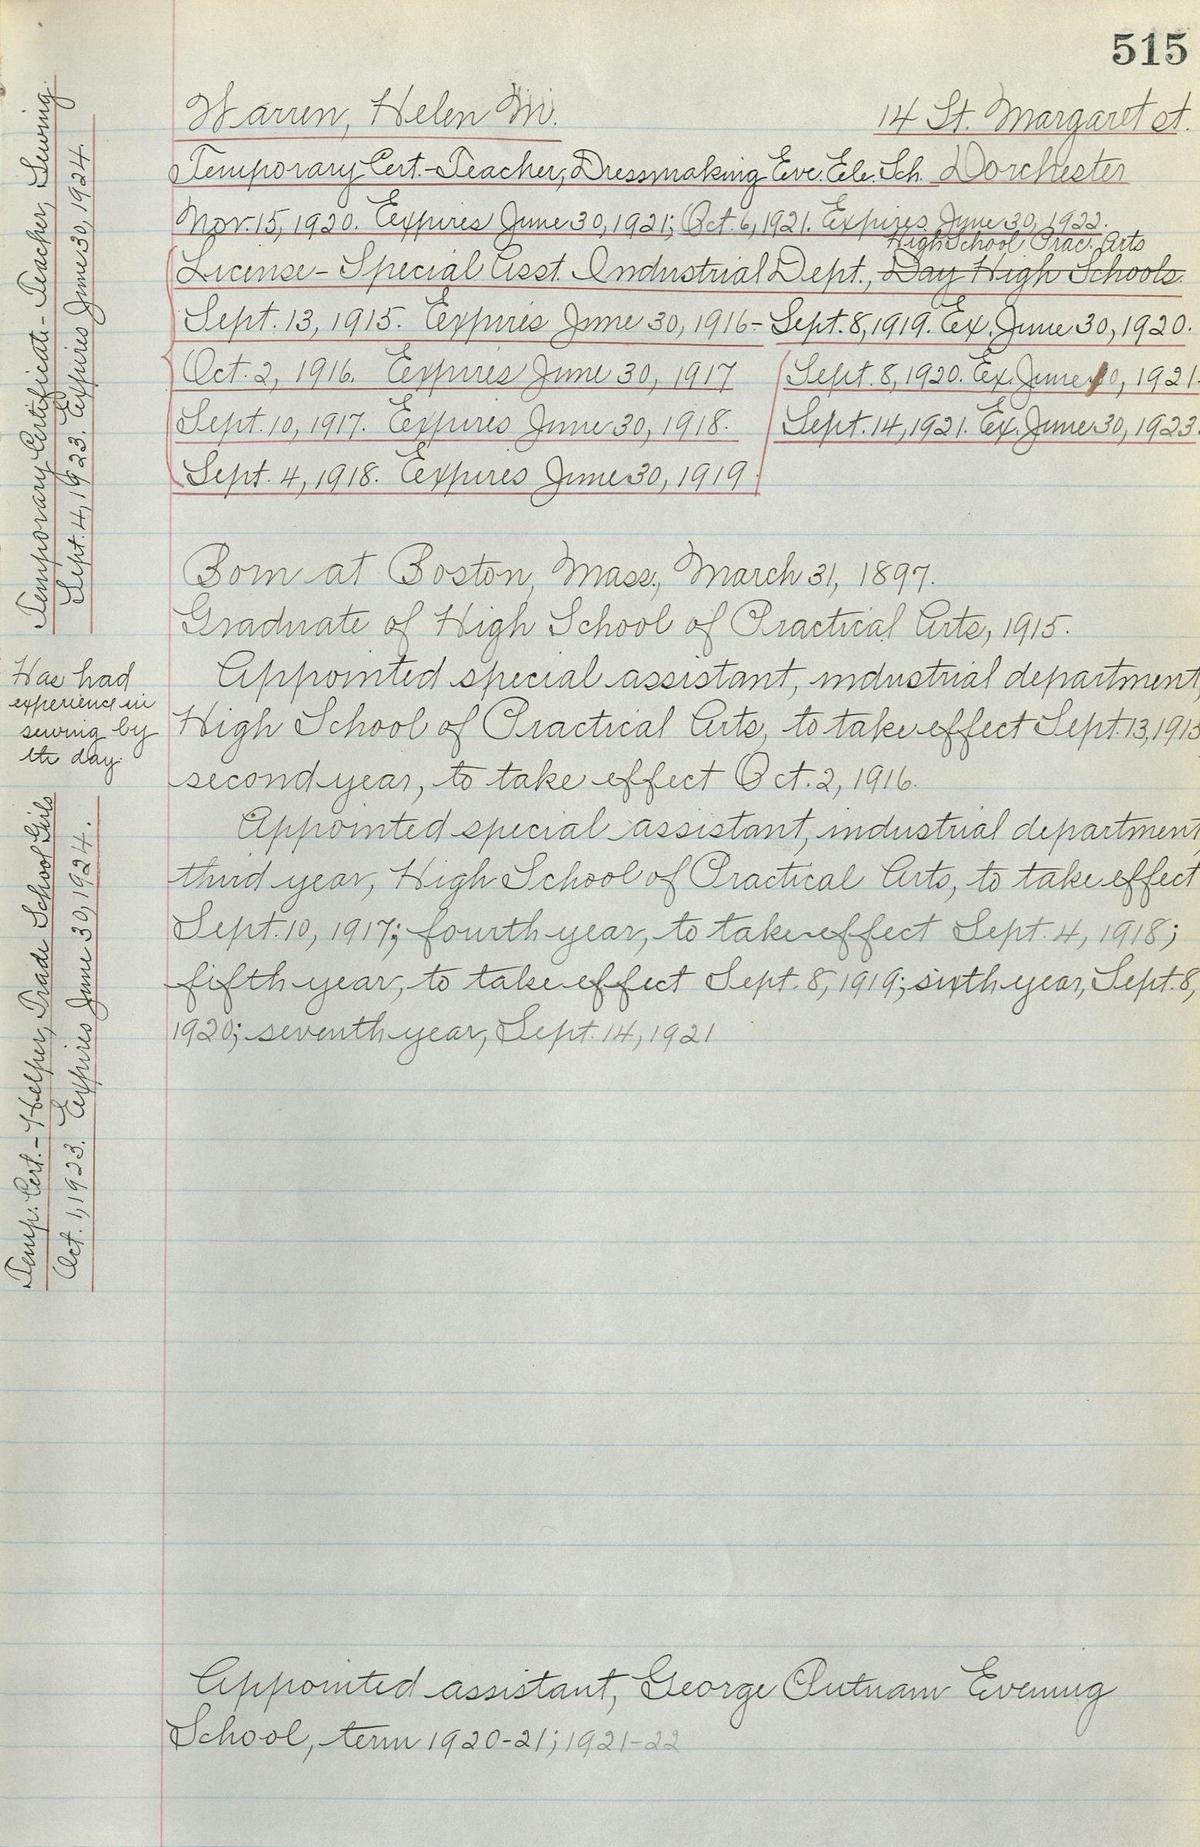 515
Warren, Helen M. 14 St. Margaret st.
Temporary Cert.-Teacher, Dressmaking Eve. Ele. Sch. Dorchester
Nov. 15, 1920. Expires June 30, 1921; Oct. 6, 1921. Expires June 30, 1922.
High School Prac. Arts
License - Special Asst. Industrial Dept., Day High Schools.
Sept. 13, 1915. Expires June 30, 1916 - Sept. 8, 1919. Ex. June 30, 1920.
Oct. 2, 1916. Expires June 30, 1917 Sept. 8, 1920. Ex. June 30, 1921.
Sept. 10, 1917. Expires June 30, 1918. Sept. 14, 1921. Ex. June 30, 1923.
Sept. 4, 1918. Expires June 30, 1919.
Born at Boston, Mass., March 31, 1897.
Graduate of High School of Practical Arts, 1915.
Appointed special assistant, industrial department,
High School of Practical Arts, to take effect Sept. 13, 1915
second year, to take effect Oct. 2, 1916.
Appointed special assistant, industrial department,
third year, High School of Practical Arts, to take effect
Sept. 10, 1917; fourth year, to take effect Sept. 4, 1918;
fifth year, to take effect Sept. 8, 1919; sixth year, Sept. 8,
1920; seventh year, Sept. 14, 1921
Appointed assistant, George Putnam Evening
School, term 1920-21; 1921-22
Temporary Certificate - Teacher, Sewing.
Sept. 4, 1923. Expires June 30, 1924.
Has had
experience in
sewing by
the day.
Temp. Cert. - Helper, Trade School Girls
Oct. 1, 1923. Expires June 30, 1924.